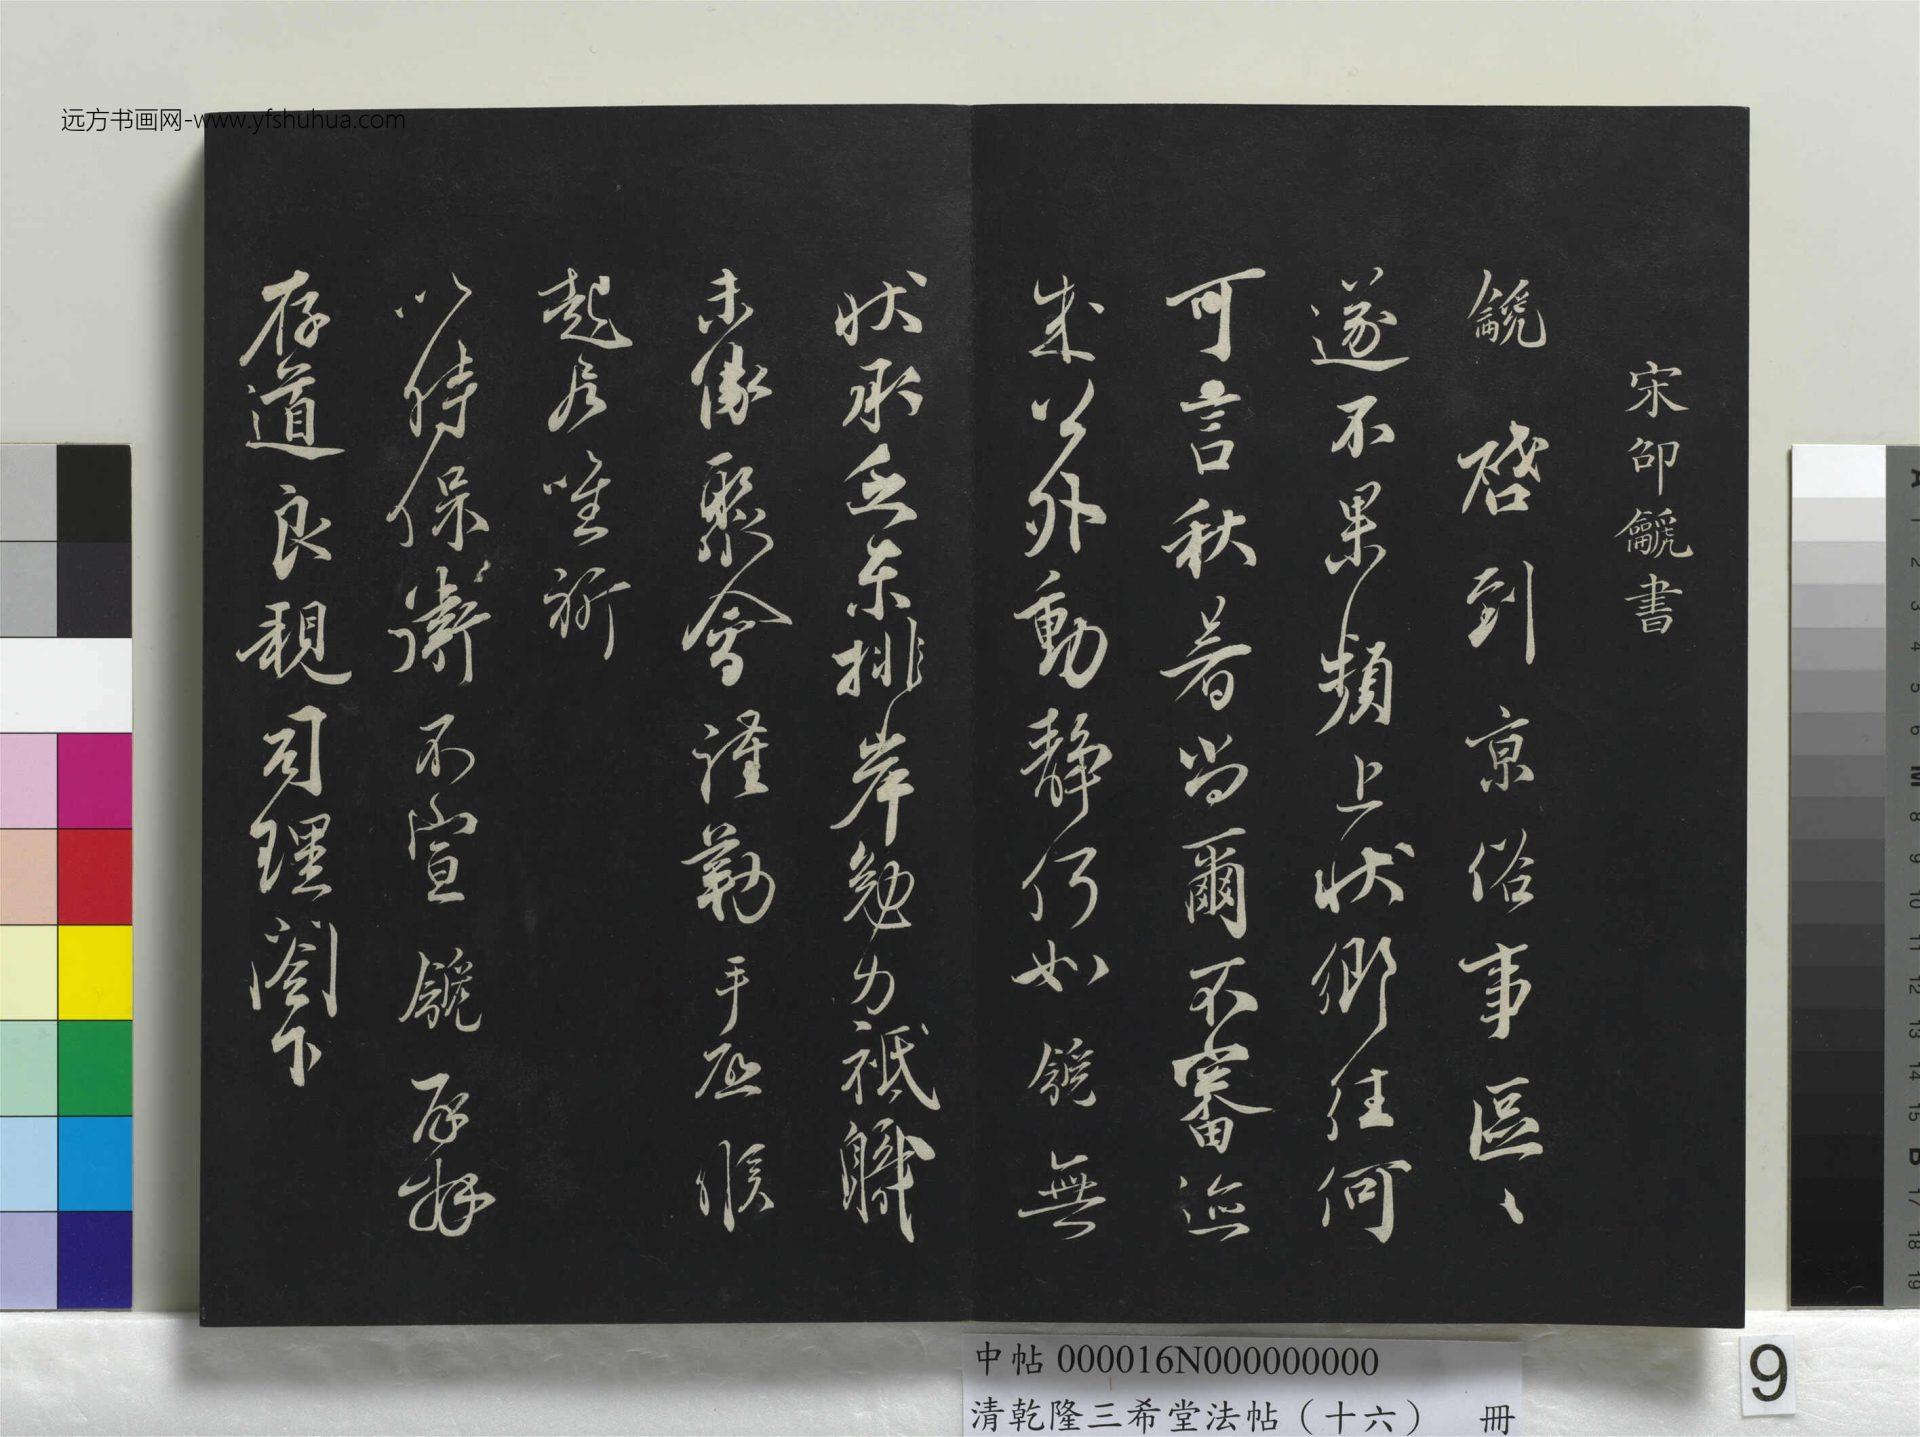 远方书画网-www.yfshuhua.com
宋邵䶵書
䶵啓到京俗事區〻
遂不果頻上狀鄉往何
可言秋暑尚爾不審迩
来公外動靜仍如䶵無
狀承乏東排岸勉力祗職
未緣聚會謹勒手啓候
起居唯祈
以時保衛不宣䶵再拜
存道良親司理閣下
中帖 000016N000000000
清乾隆三希堂法帖(十六) 冊
9